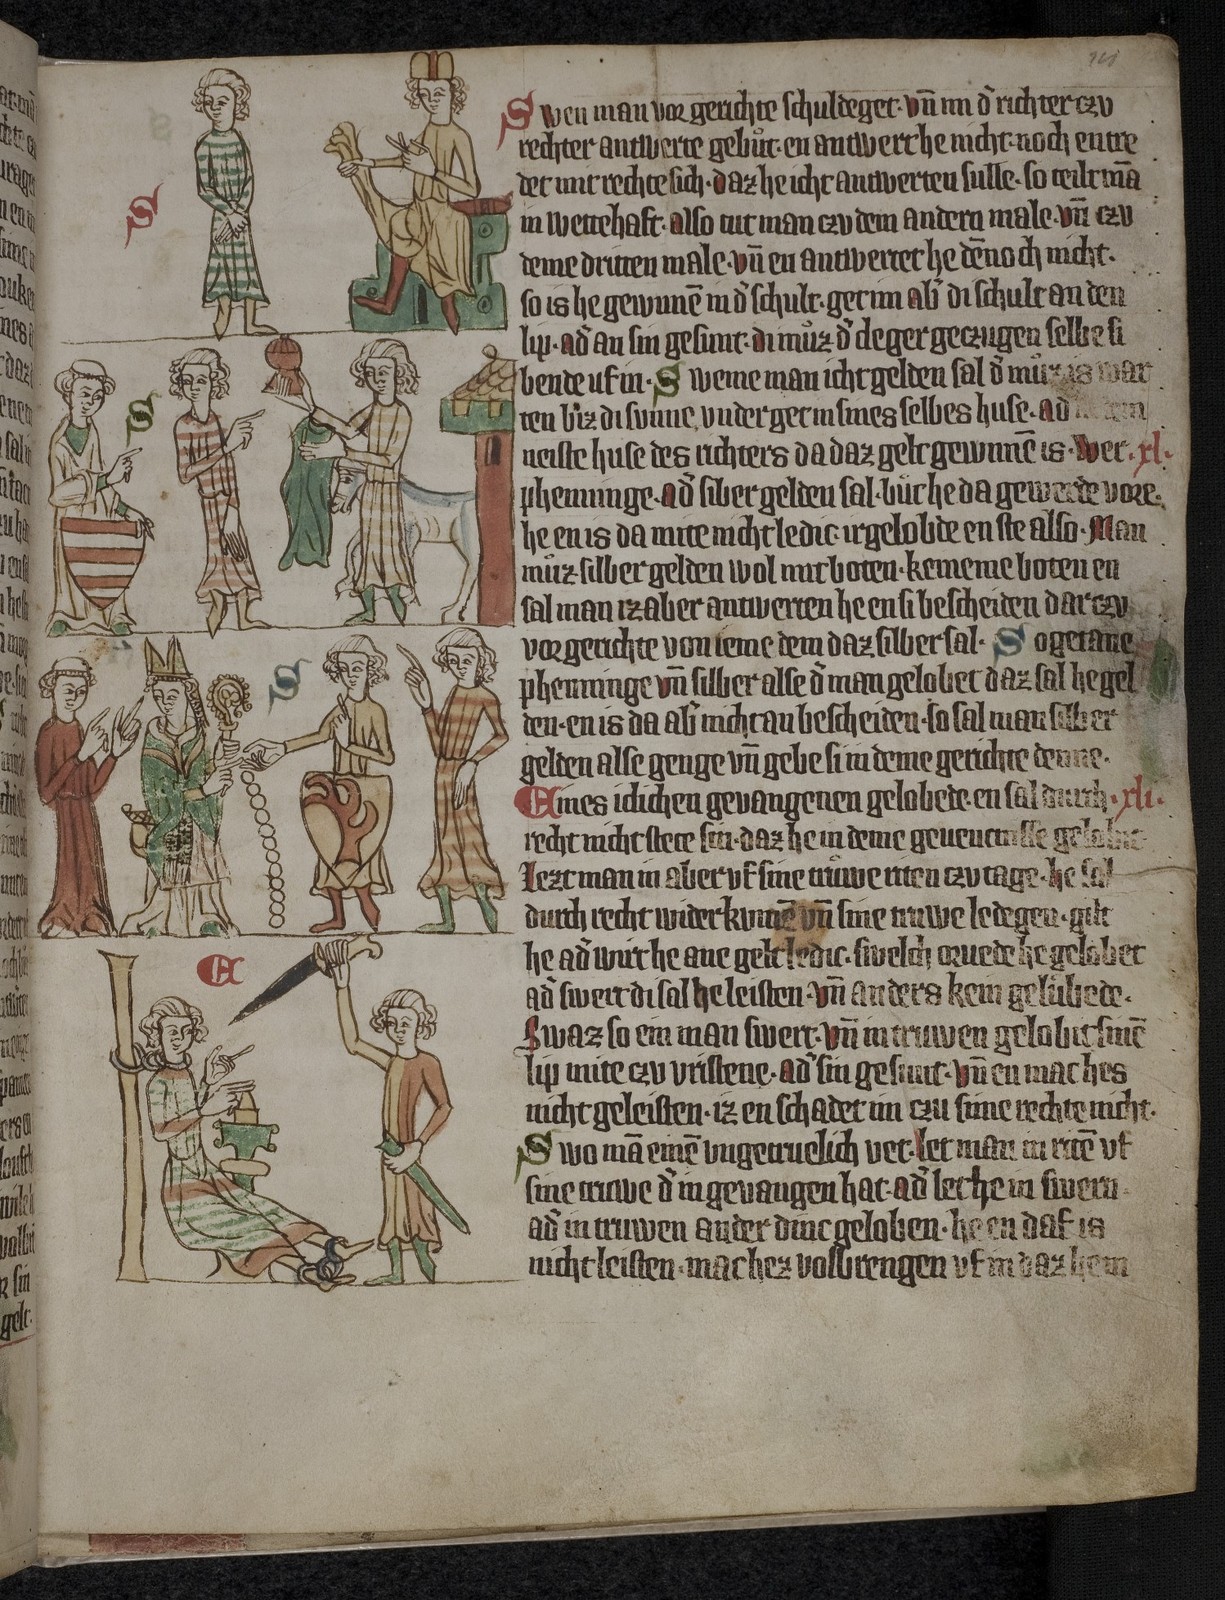 Swen man vor gerichte schuldeget· vn̄ im d̕ richter czu
rechter antwerte gebůt· en antwert he nicht· noch entre
det mit rechte sich· daz he icht antwerten sulle· so teilt mā
in wettehaft· also tut man czu dem andern male· vn̄ czu
deme dritten male· vn̄ en antwertet he dēnoch nicht·
so is he gewunnē in d̕ schult· get im ab̕ di schult an den
lip· ad̕ an sin gesunt· di můz d̕ cleger geczugen selbe si
bende uf in· Sweme man icht gelden sal d̕ můz is war
ten biz di sunne underget in sines selbes huse· ad̕
neiste huse des richters da daz gelt gewunnē is· Wer ·xl·
phenninge· ad̕ silber gelden sal· bůt he da gewerde vore·
he en is da mite nicht ledic· ir gelobde en ste also· Man
můz silber gelden wol mit boten· keineme boten en
sal man iz aber antwerten he en si bescheiden darczu
vor gerichte von ieme dem daz silber sal· Sogetane
phenninge vn̄ silber alse d̕ man gelobet daz sal he gel
den· en is da ab̕ nicht an bescheiden· so sal man silber
gelden alse genge vn̄ gebe si in deme gerichte denne·
Eines iclichen gevangenen gelobede· en sal durch ·xli·
recht nicht stete sin· daz he in deme gevencnisse gelobit·
Lezt man in aber vf sine trůwe riten czu tage· he sal
durch recht wider kumē vn̄ sine truwe ledegen· gilt
he ad̕ wirt he ane gelt ledic· swelch orvede he gelobet
ad̕ swert di sal he leisten· vn̄ anders kein gelůbede·
Swaz so ein man swert· vn̄ in truwen gelobit sinē
lip mite czu vristene· ad̕ sin gesunt· vn̄ en mac hes
nicht geleisten· iz en schadet im czu sime rechte nicht·
Swo mā einē ungetruelich vet· let man in ritē vf
sine truwe d̕ in gevangen hat· ad̕ let he in swern
ad̕ in truwen ander dinc geloben· he en daf is
nicht leisten· mac hez volbrengen vf in daz he in
S
S
S
E